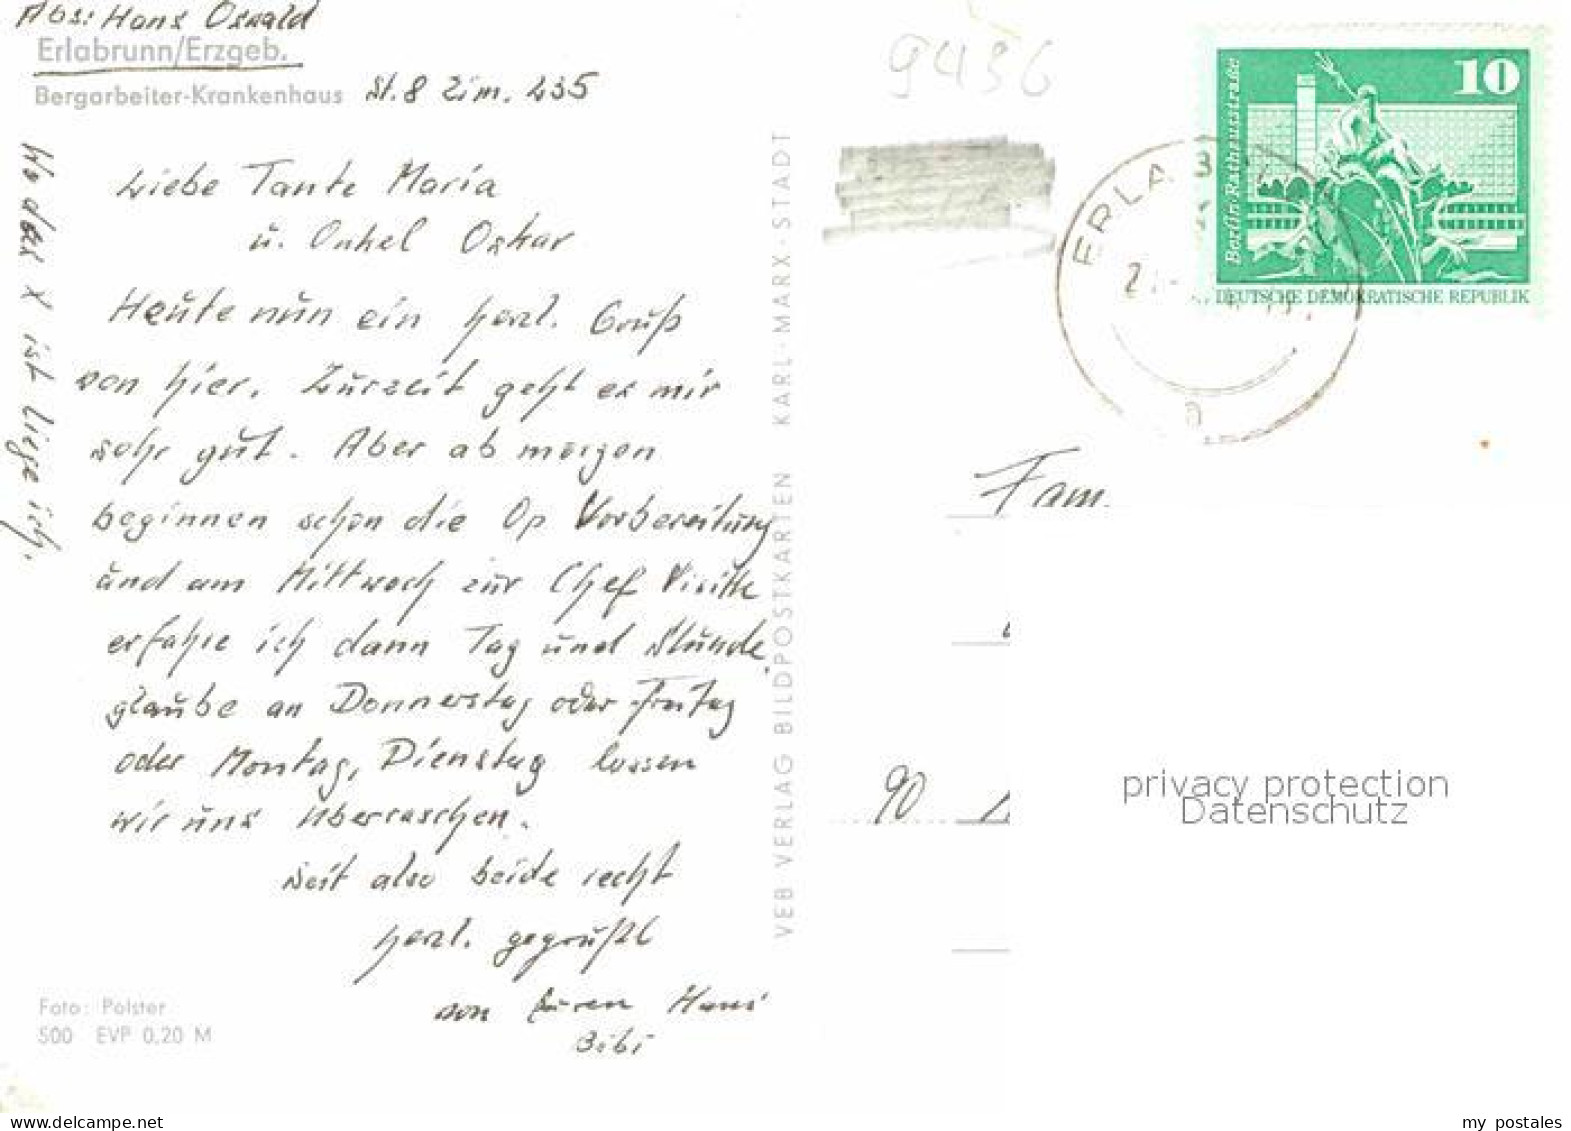 Abs: Hans Oswald
Erlabrunn/Erzgeb.
Bergarbeiter-Krankenhaus St. 8 Zim. 235
Wo das X ist liege ich.
Liebe Tante Maria
u. Onkel Oskar
Heute nun ein herzl. Gruß
von hier. Zurzeit geht es mir
sehr gut. Aber ab morgen
beginnen schon die Op Vorbereitung
und am Mittwoch zur Chef Visitte
erfahre ich dann Tag und Stunde.
glaube an Donnerstag oder Freitag
oder Montag, Dienstag lassen
wir uns überraschen.
Seit also beide recht
herzl. gegrüßt
von Euren Hans
Bibi
Foto: Polster
500 EVP 0,20 M
VEB VERLAG BILDPOSTKARTEN KARL-MARX-STADT
9436
10
Berlin · Rathausstraße
DEUTSCHE DEMOKRATISCHE REPUBLIK
ERLAB
a
Fam.
90
privacy protection
Datenschutz
my postales